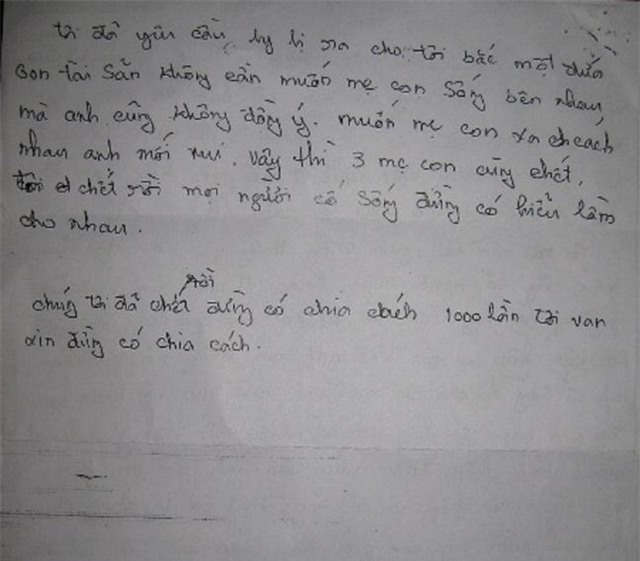 tôi đã yêu cầu ly lị ra cho tôi bắc một đứa
con tài sản không cần muốn mẹ con sống bên nhau
mà anh cũng không đồng ý. muốn mẹ con xa cách
nhau anh mới vui. vậy thì 3 mẹ con cùng chết,
tôi chết rồi mọi người cố sống đừng có hiểu lầm
cho nhau.
rồi
chúng tôi đã chết đừng có chia cách 1000 lần tôi van
xin đừng có chia cách.